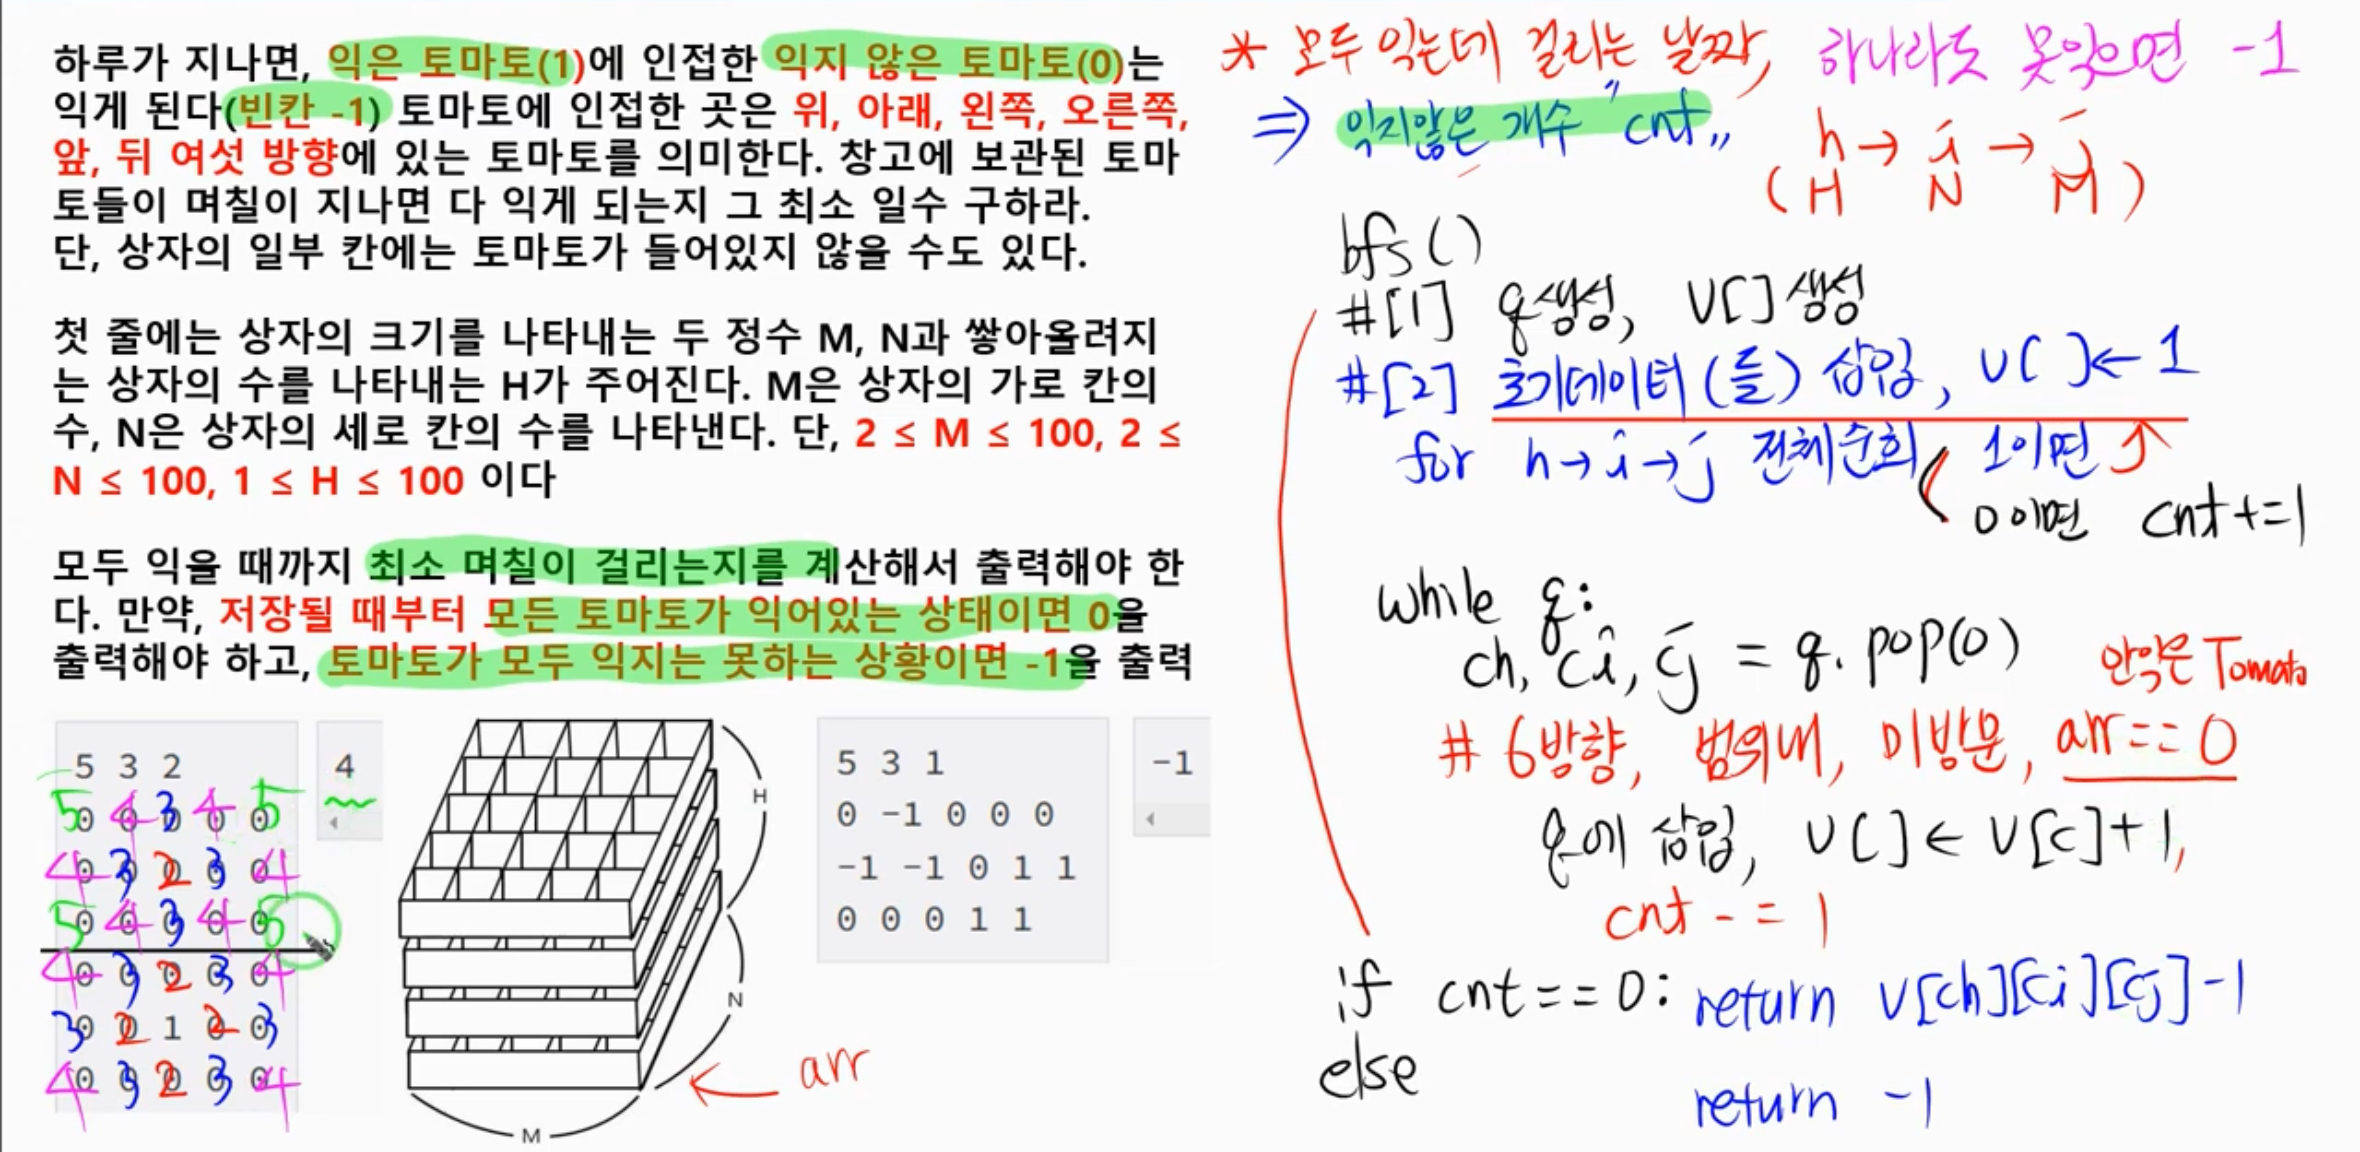 하루가 지나면, 익은 토마토(1)에 인접한 익지 않은 토마토(0)는
익게 된다(빈칸 -1) 토마토에 인접한 곳은 위, 아래, 왼쪽, 오른쪽,
앞, 뒤 여섯 방향에 있는 토마토를 의미한다. 창고에 보관된 토마
토들이 며칠이 지나면 다 익게 되는지 그 최소 일수 구하라.
단, 상자의 일부 칸에는 토마토가 들어있지 않을 수도 있다.
첫 줄에는 상자의 크기를 나타내는 두 정수 M, N과 쌓아올려지
는 상자의 수를 나타내는 H가 주어진다. M은 상자의 가로 칸의
수, N은 상자의 세로 칸의 수를 나타낸다. 단, 2 ≤ M ≤ 100, 2 ≤
N ≤ 100, 1 ≤ H ≤ 100 이다
모두 익을 때까지 최소 며칠이 걸리는지를 계산해서 출력해야 한
다. 만약, 저장될 때부터 모든 토마토가 익어있는 상태이면 0을
출력해야 하고, 토마토가 모두 익지는 못하는 상황이면 -1을 출력
5 3 2
5 4 3 4 5
4 3 2 3 4
5 4 3 4 5
4 3 2 3 4
3 2 1 2 3
4 3 2 3 4
4
H
N
M
arr
5 3 1
0 -1 0 0 0
-1 -1 0 1 1
0 0 0 1 1
-1
* 모두 익는데 걸리는 날짜, 하나라도 못익으면 -1
⇒ 익지않은 개수 "cnt"
h → i → j
( H N M )
bfs()
#[1] q생성, v[] 생성
#[2] 초기데이터(들) 삽입, v[ ]← 1
for h→i→j 전체순회 1이면 ↑
0이면 cnt+=1
while q:
ch, ci, cj = q.pop(0)
안익은 Tomato
# 6방향, 범위내, 미방문, arr==0
q에 삽입, v[ ] ← v[c]+1,
cnt -= 1
if cnt==0: return v[ch][ci][cj]-1
else
return -1